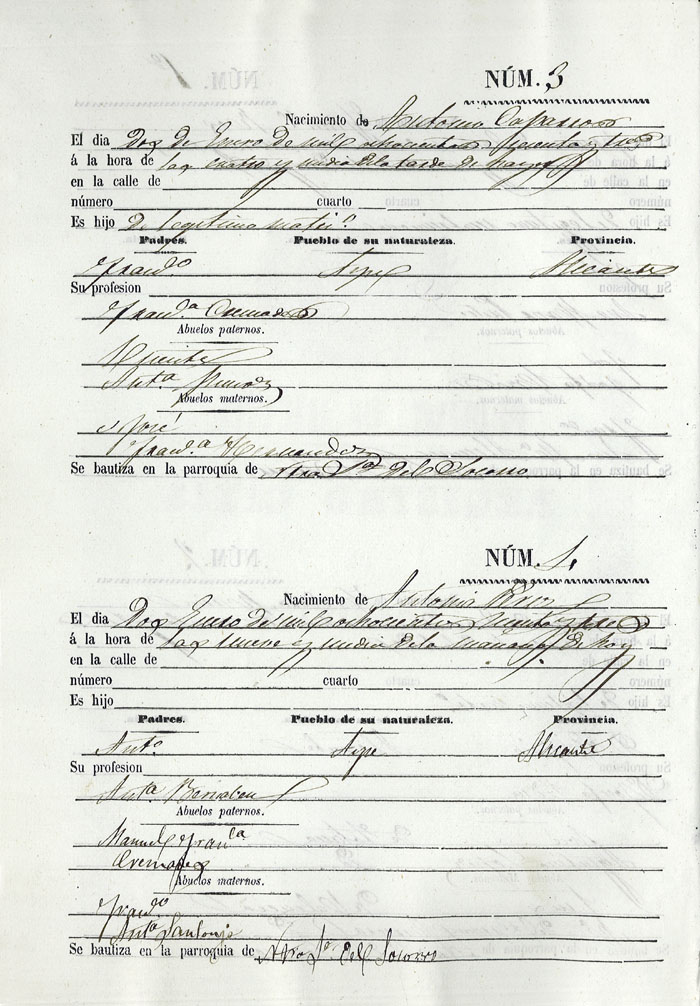 NÚM. 3
Nacimiento de Antonio
El dia Dos de Enero de mil ochocientos sesenta y tres
á la hora de las cuatro y media de la tarde de hoy
en la calle de
número cuarto
Es hijo de legitimo matrº.
Padres. Pueblo de su naturaleza. Provincia.
Francº Aspe Alicante
Su profesion
Francª Cremades
Abuelos paternos.
Vicente
Antª
Abuelos maternos.
José
Francª Hernandez
Se bautiza en la parroquia de Ntra Sra del Socorro
NÚM. 4.
Nacimiento de
El dia Dos Enero de mil ochocientos sesenta y tres
á la hora de las nueve y media de la mañana de hoy
en la calle de
número cuarto
Es hijo
Padres. Pueblo de su naturaleza. Provincia.
Antº Aspe Alicante
Su profesion
Antª Bernabeu
Abuelos paternos.
Manuel y Francª
Cremades
Abuelos maternos.
Francº
Antª Santonja
Se bautiza en la parroquia de Ntra Sra del Socorro